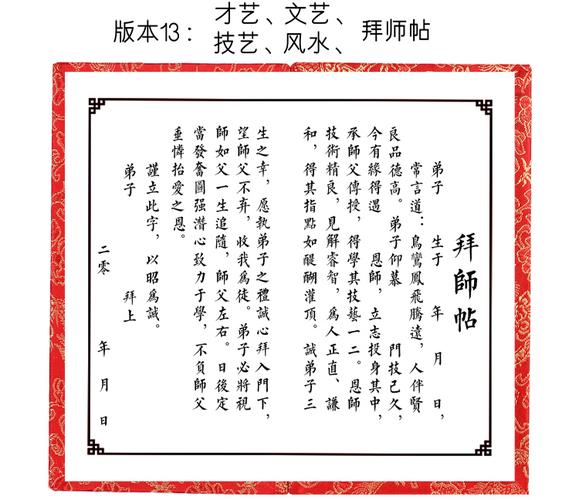 版本13：
才艺、文艺、
技艺、风水、
拜师帖
拜師帖
弟子 生于 年 月 日，
常言道：鳥鸞鳳飛騰遠，人伴賢
良品德高。弟子仰慕 門技已久，
今有緣得遇 恩師，立志投身其中，
承師父傳授，得學其技藝一二。恩師
技術精良，見解睿智，為人正直、謙
和，得其指點如醍醐灌頂。誠弟子三
生之幸，愿執弟子之禮誠心拜入門下，
望師父不弃，收我為徒。弟子必將視
師如父一生追隨，師父左右。日後定
當發奮圖强潛心致力于學，不負師父
垂憐抬愛之恩。
謹立此字，以昭為誠。
弟子 拜上
二零 年 月 日